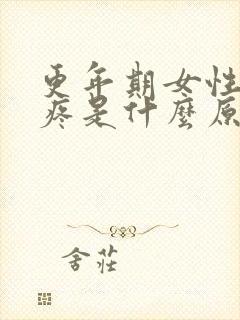 更年期女性
疼是什麼原
舍莊